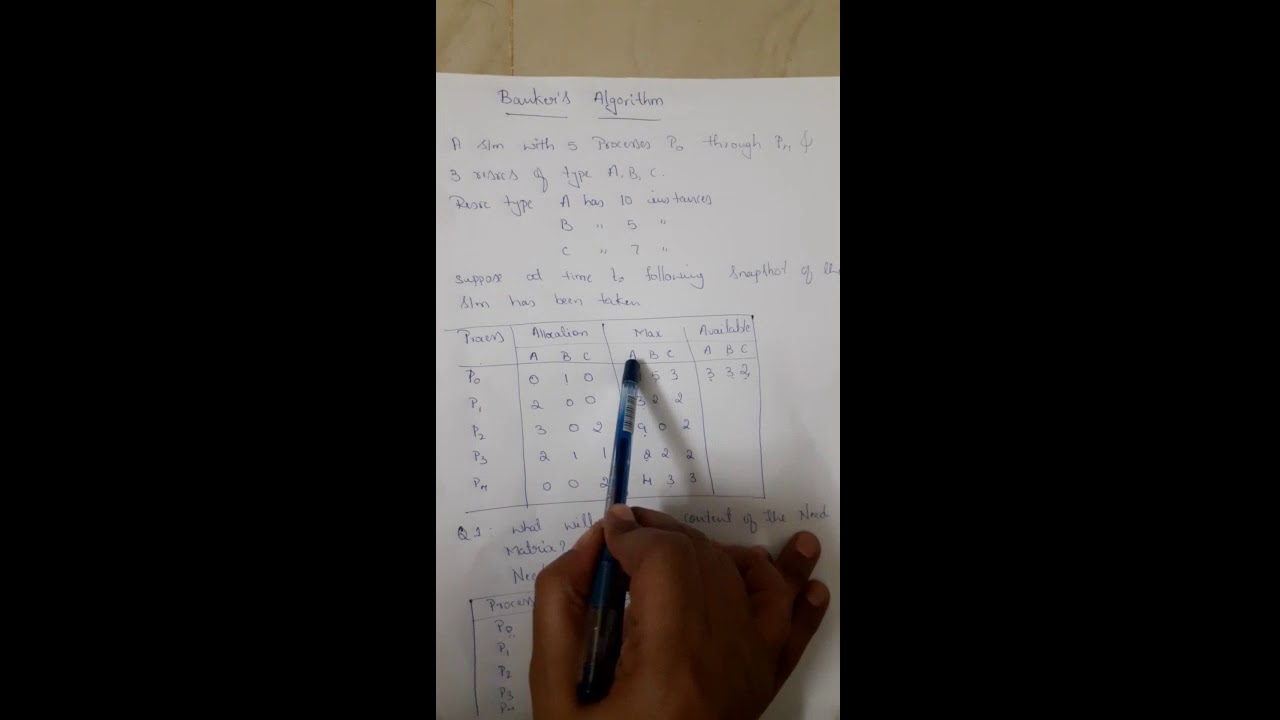 Banker's Algorithm
A s/m with 5 Processes P0 through P4 &
3 resrcs of type A, B, C.
Resrc type A has 10 instances
B " 5 "
C " 7 "
suppose at time t0 following snapshot of the
s/m has been taken
Process Allocation Max Available
A B C A B C A B C
P0 0 1 0 5 3 3 3 2
P1 2 0 0 3 2 2
P2 3 0 2 9 0 2
P3 2 1 1 2 2 2
P4 0 0 2 4 3 3
Q1: what will content of the Need
Matrix?
Process
P0
P1
P2
P3
P4